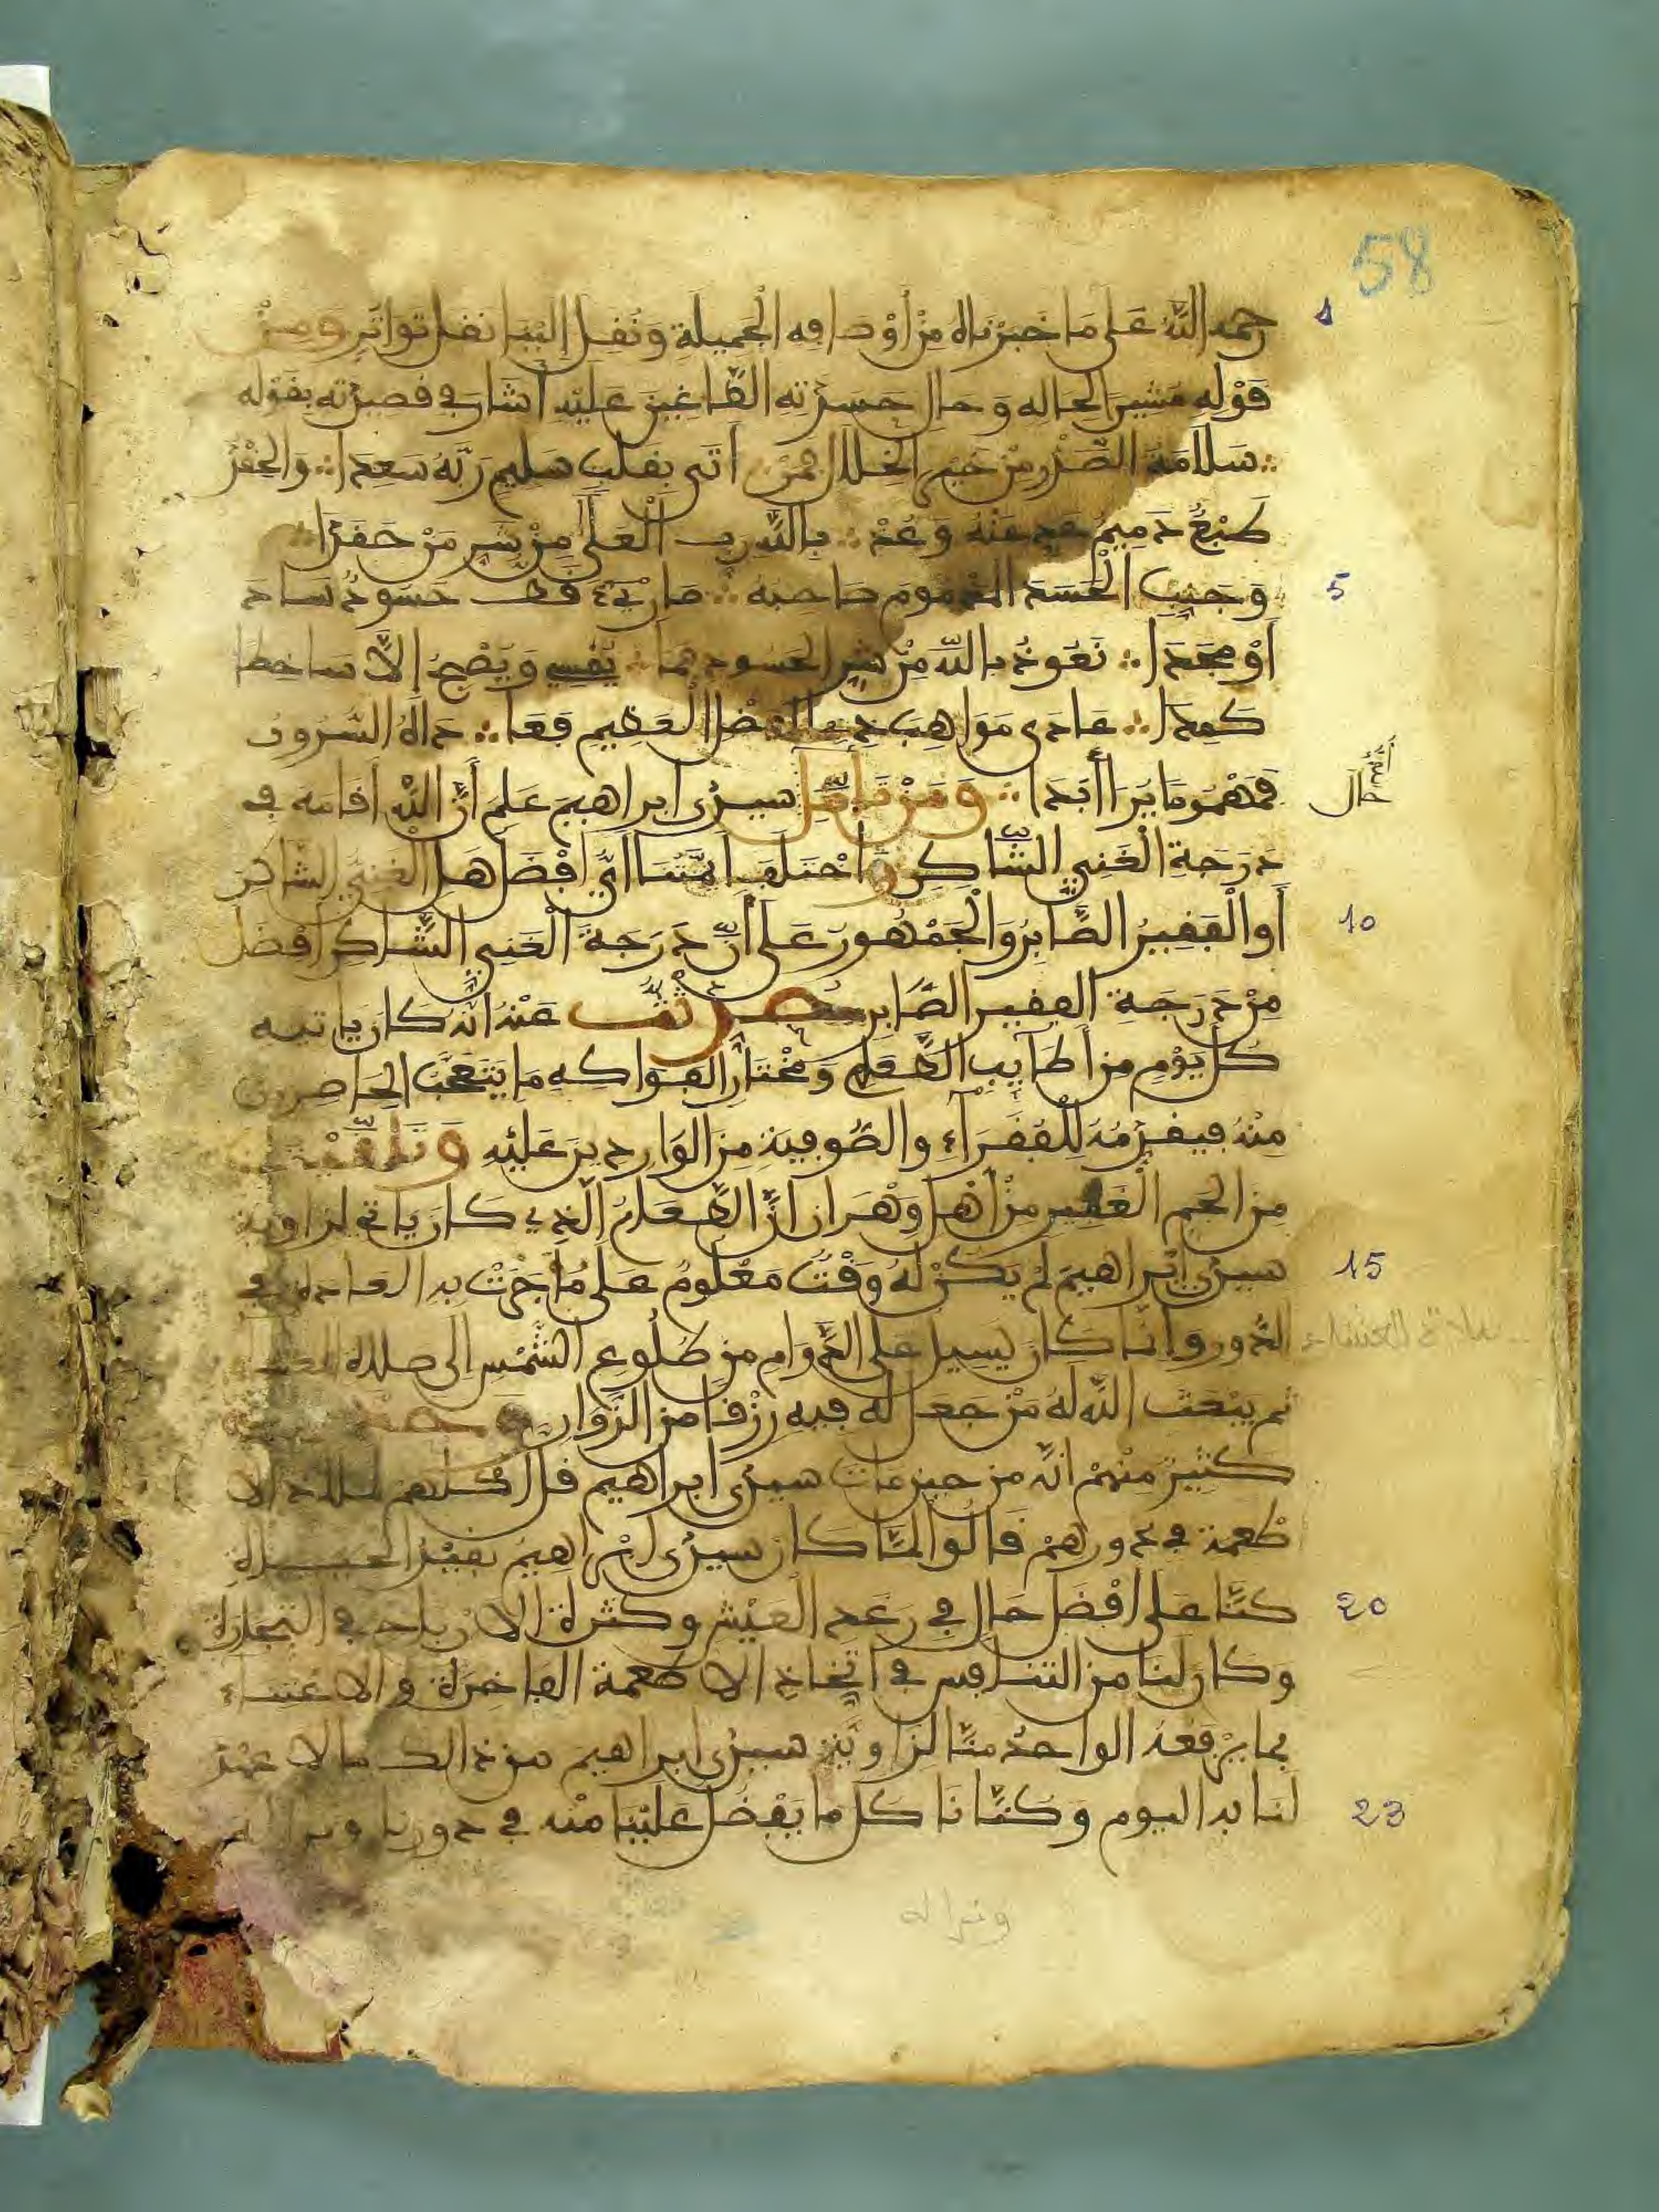 58
1 رحمه الله عَلى مَا خَبَرْنَاهُ مِنْ أوْصَافِهِ الْجَمِيلَةِ وَنُقِلَ إلَيْنَا نَقْلَ تَوَاتُرٍ وَمِنْ
قَوْلِهِ مُشِيرًا لحاله وَحالِ حَسَدَتِهِ الطَّاغِينَ عَلَيْهِ أشَارَ في قصيدته بقوله
سَلَامَةُ الصَّدْرِ مِنْ خَيْرِ الْخِلَالِ فَمَنْ ∴ أتَى بقَلْبٍ سَلِيمٍ رَبَّهُ سَعِدَا ∴ وَالْحِقْدُ
طَبْعٌ ذَمِيمٌ عَدِّ عَنْهُ وَعُذْ ∴ بِاللَّهِ رَبِّ الْعُلَى مِنْ شَرِّ مَنْ حَقَدَا ∴
5 وَجَنِّبِ الْحَسَدَ الْمَذْمُومَ صَاحِبُهُ ∴ مَا رِيءَ قَطُّ حَسُودٌ سَادَ
أوْ مَجُدَا ∴ نَعُوذُ بِاللَّهِ مِنْ شَرِّ الْحَسُودِ فَمَا ∴ يُمْسِي وَيُصْبِحُ إلَّا سَاخِطًا
كَمِدَا ∴ عَادَى مَوَاهِبَ ذِي الْفَضْلِ الْعَظِيمِ فَعَا ∴ دَاهُ السُّرُورُ
فَمَهْمُومًا يُرَا أبَدَا ∴ وَمَنْ تَأَمَّلَ حَالَ سيدي ابراهيمَ عَلِمَ أنَّ اللَّهَ أقَامَهُ في
دَرَجَةِ الْغَنِيِّ الشَّاكِرِ وَاخْتَلَفَ أئِمَّتُنَا أيُّ أفْضَلُ هَلِ الْغَنِيُّ الشاكرُ
10 أوِ الْفَقِيرُ الصَّابِرُ وَالْجُمْهُورُ عَلَى أنَّ دَرَجَةَ الْغَنِيِّ الشَّاكِرِ أفْضَلُ
مِنْ دَرَجَةِ الفقير الصَّابِرِ حُدِّثْتُ عَنْهُ أنَّهُ كَانَ ياتيه
كُلَّ يَوْمٍ مِن أطَايِبِ الطَّعَامِ وَمُخْتَارِ الفَوَاكِهِ مَا يَتَعَجَّبُ الْحَاضِرون
مِنْهُ فيقدِّمُهُ لِلْفُقَرَآءِ والصُّوفِيَةِ مِنَ الْوَارِدِينَ عَلَيْهِ وَتَلَقَّيْتُ
مِنَ الْجَمِّ الْغَفِيرِ مِنْ أهْلِ وَهْرَان أنَّ الطَّعَامَ الَّذِي كَانَ ياتي لزاوية
15 سيدي إبْراهيمَ لَمْ يَكُنْ لَهُ وَقْتٌ مَعْلُومٌ عَلَى مَا جَرَتْ به العادة في
الدُّورِ وَإنما كَانَ يَسِيلُ عَلَى الدَّوَامِ من طُلُوعِ الشَّمْسِ إلى صلاة العشـ صلاة العشاء
ثم يَبْعَثُ اللَّهُ لَهُ مَنْ جَعَلَ لَهُ فِيهِ رِزْقًا مِنَ الزُّوَارِ
كَثِيرٌ مِنْهُمْ أنَّهُ مِن حِينِ مَاتَ سيدي ابراهيم قَلَّ اكْلُهُم لِمَلاذِ الا
طْعِمَةِ في دورهمْ قَالُوا لَمَّا كانَ سيدي إبْراهِيمُ بقيد الحيـاة
20 كنَّا على أفْضَلِ حَالٍ فِي رَغَدِ الْعَيْشِ وكثرة الارباح في التجارة
وكانَ لنَا مِنَ التنافس في اتِّخَاذِ الاطعمة الفاخرة والاعتناء
بما يَرْفَعُهُ الواحدُ منَّا لِزَاوِيَةِ سيدي ابراهيمَ مِن ذالك ما لا عهد
23 لنا به اليوم وَكنَّا نَا كل ما يَفْضُلُ عَلَيْنَا مِنْه في دورنا ونراه
ونراه